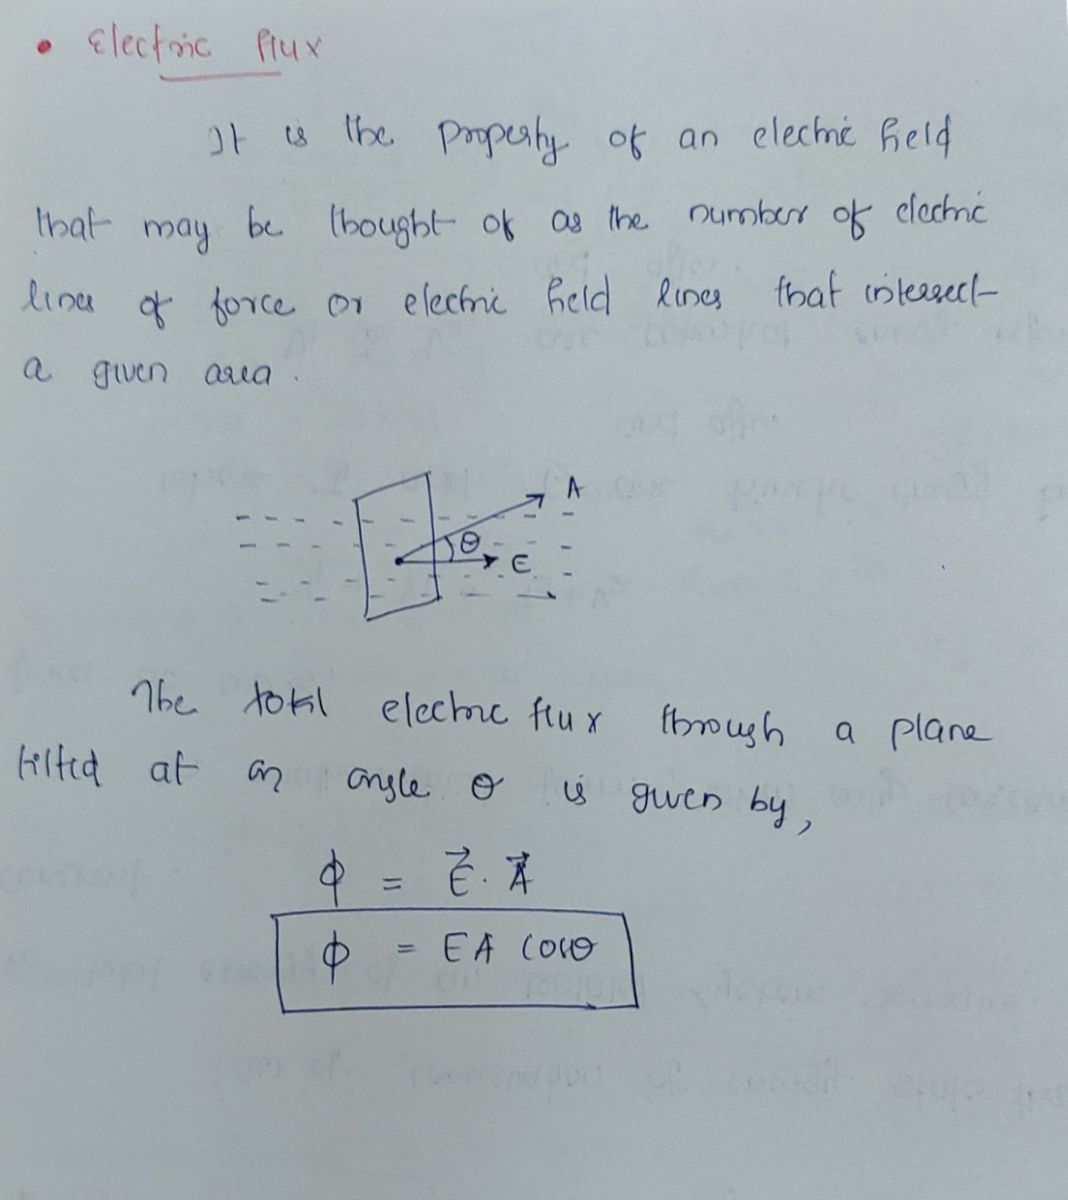 • Electric flux
It is the property of an electric field
that may be thought of as the number of electric
lines of force or electric field lines that intersect
a given area.
A
θ
E
The total electric flux through a plane
tilted at an angle θ is given by,
ϕ = E⃗ . A⃗
ϕ = EA cosθ